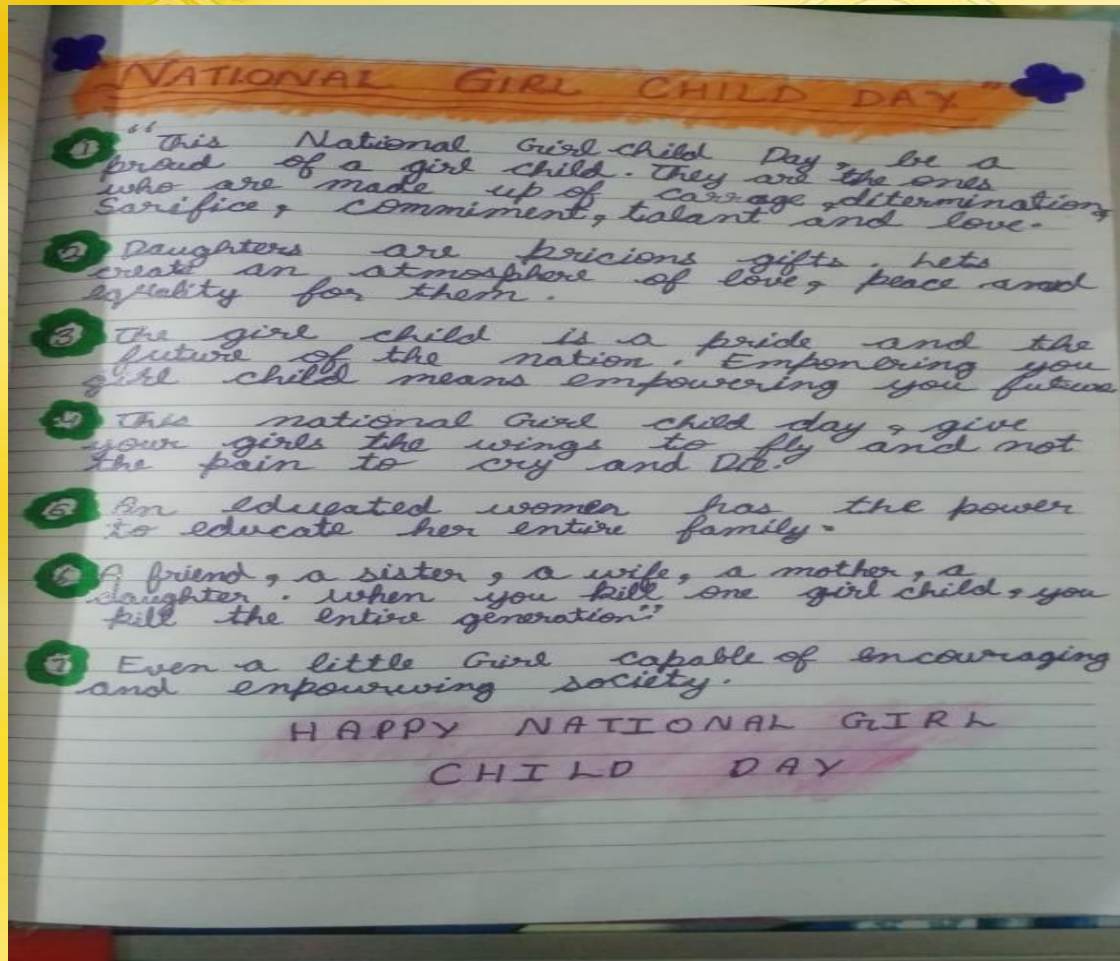 "NATIONAL GIRL CHILD DAY"
1 "This National Girl child Day, be a
proud of a girl child. They are the ones
who are made up of carrage, ditermination,
Sarifice, commiment, talant and love.
2 Daughters are pricions gifts. Lets
create an atmosphere of love, peace and
equality for them.
3 The girl child is a pride and the
future of the nation. Emponering you
girl child means empowering you future
4 This national Girl child day, give
your girls the wings to fly and not
the pain to cry and Die.
5 An educated women has the power
to educate her entire family.
6 A friend, a sister, a wife, a mother, a
daughter. when you kill one girl child, you
kill the entire generation"
7 Even a little Girl capable of encouraging
and enpouwuing society.
HAPPY NATIONAL GIRL
CHILD DAY